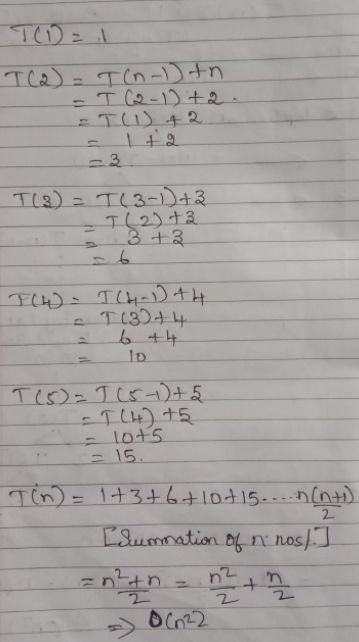 T(1) = 1
T(2) = T(n-1)+n
= T(2-1)+2.
= T(1)+2
= 1+2
= 3
T(3) = T(3-1)+3
= T(2)+3
= 3+3
= 6
T(4) = T(4-1)+4
= T(3)+4
= 6+4
= 10
T(5) = T(5-1)+5
= T(4)+5
= 10+5
= 15.
T(n) = 1+3+6+10+15.....n(n+1)/2
[Summation of n nos/.]
= n²+n/2 = n²/2 + n/2
⇒ O(n2)